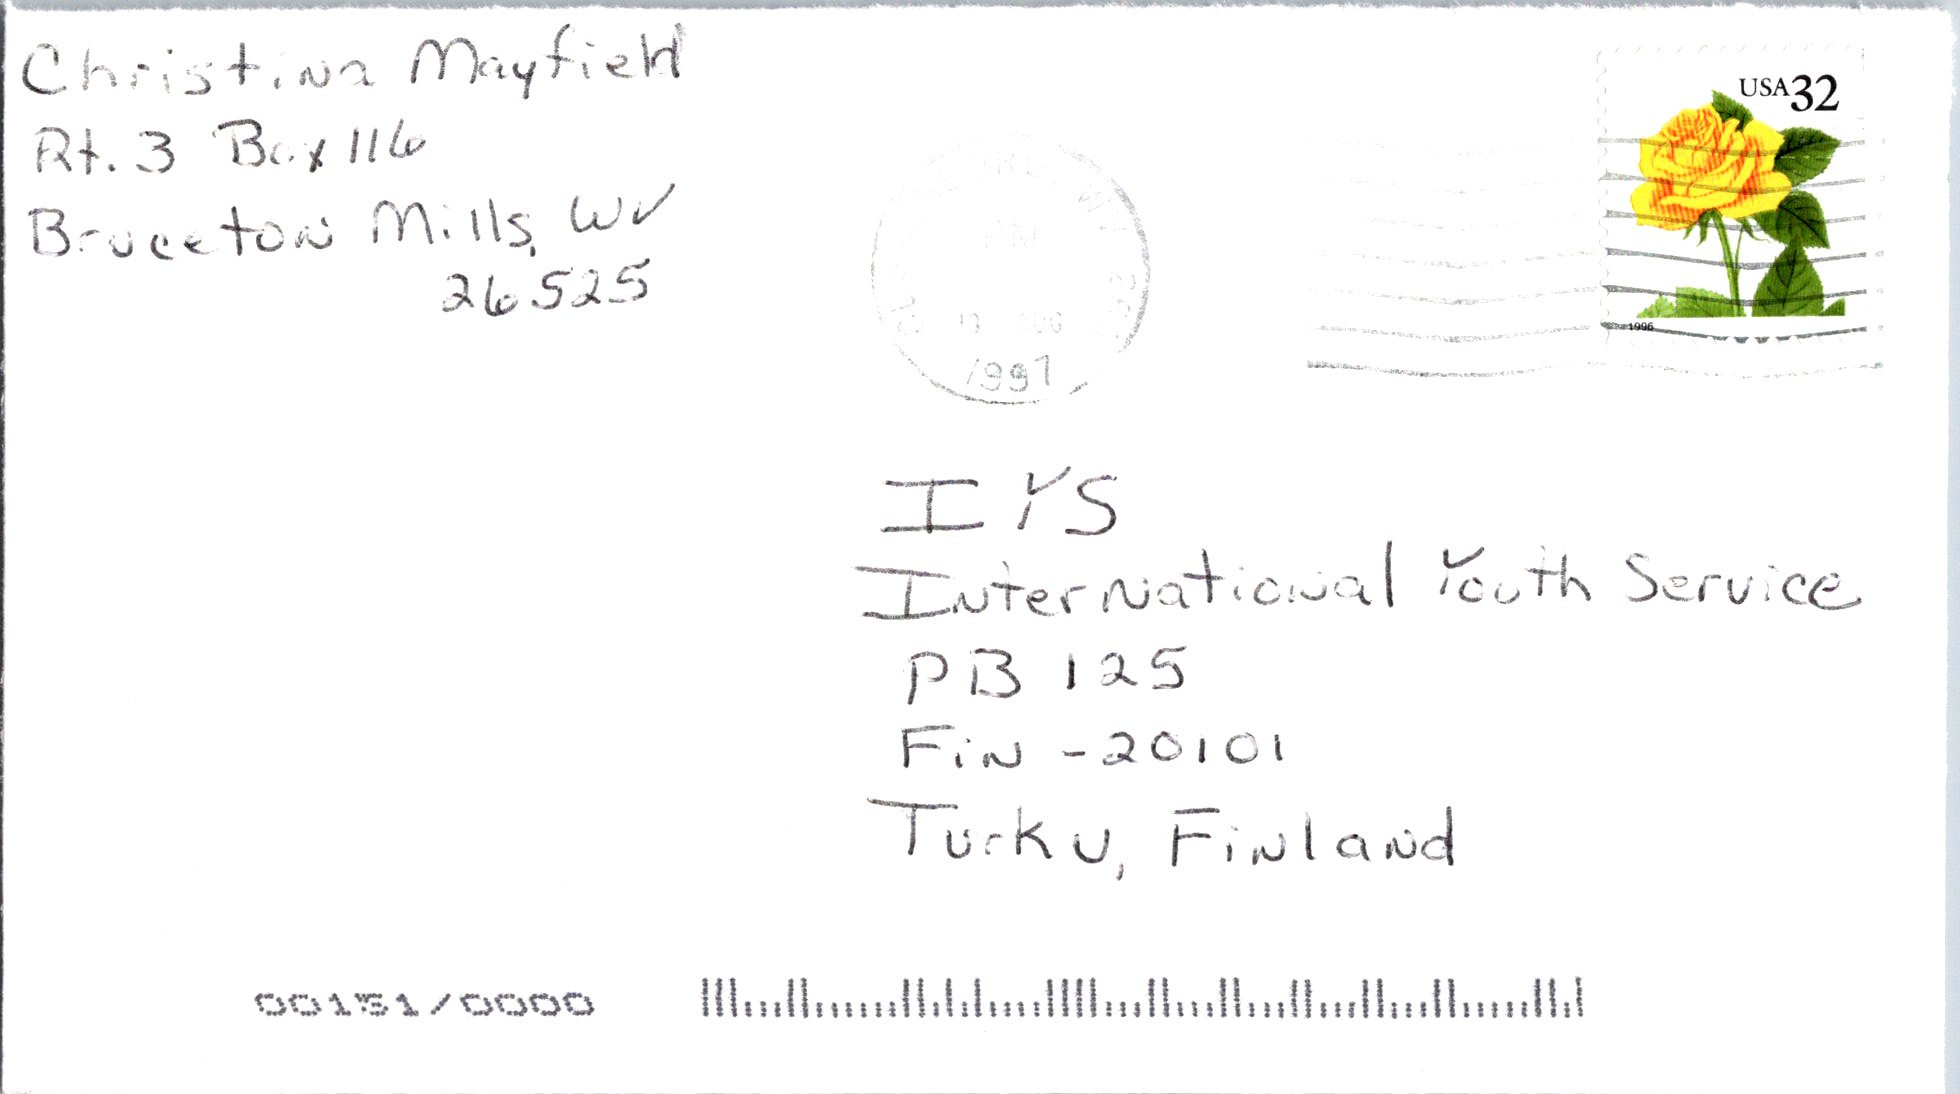 Christina Mayfield
Rt. 3 Box 116
Bruceton Mills, WV
26525
USA 32
1996
PM
AUG
1997
IYS
International Youth Service
PB 125
Fin - 20101
Turku, Finland
00151/0000